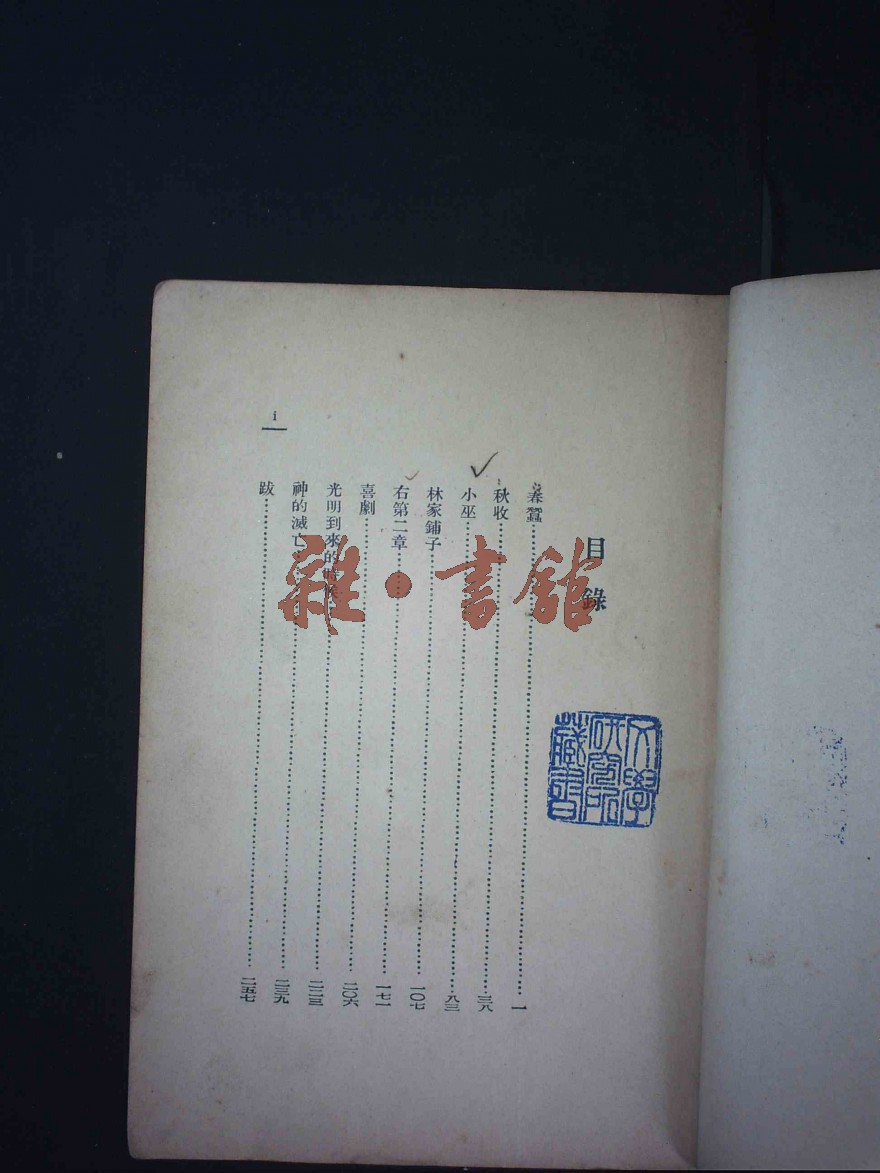 目錄
春蠶……一
秋收……三八
小巫……八三
林家鋪子……一〇七
右第二章……一七一
喜劇……二〇六
光明到來的時候……二二三
神的滅亡……二三九
跋……二五七
i
雜·書館
文學研究所藏書